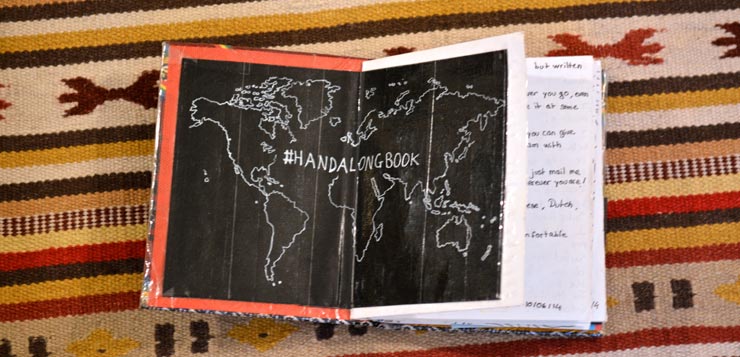 #HANDALONGBOOK
but written
ver you go, even
e it at some
you can give
am with
just mail me
erever you are!
ese, Dutch,
mfortable
10/06/14